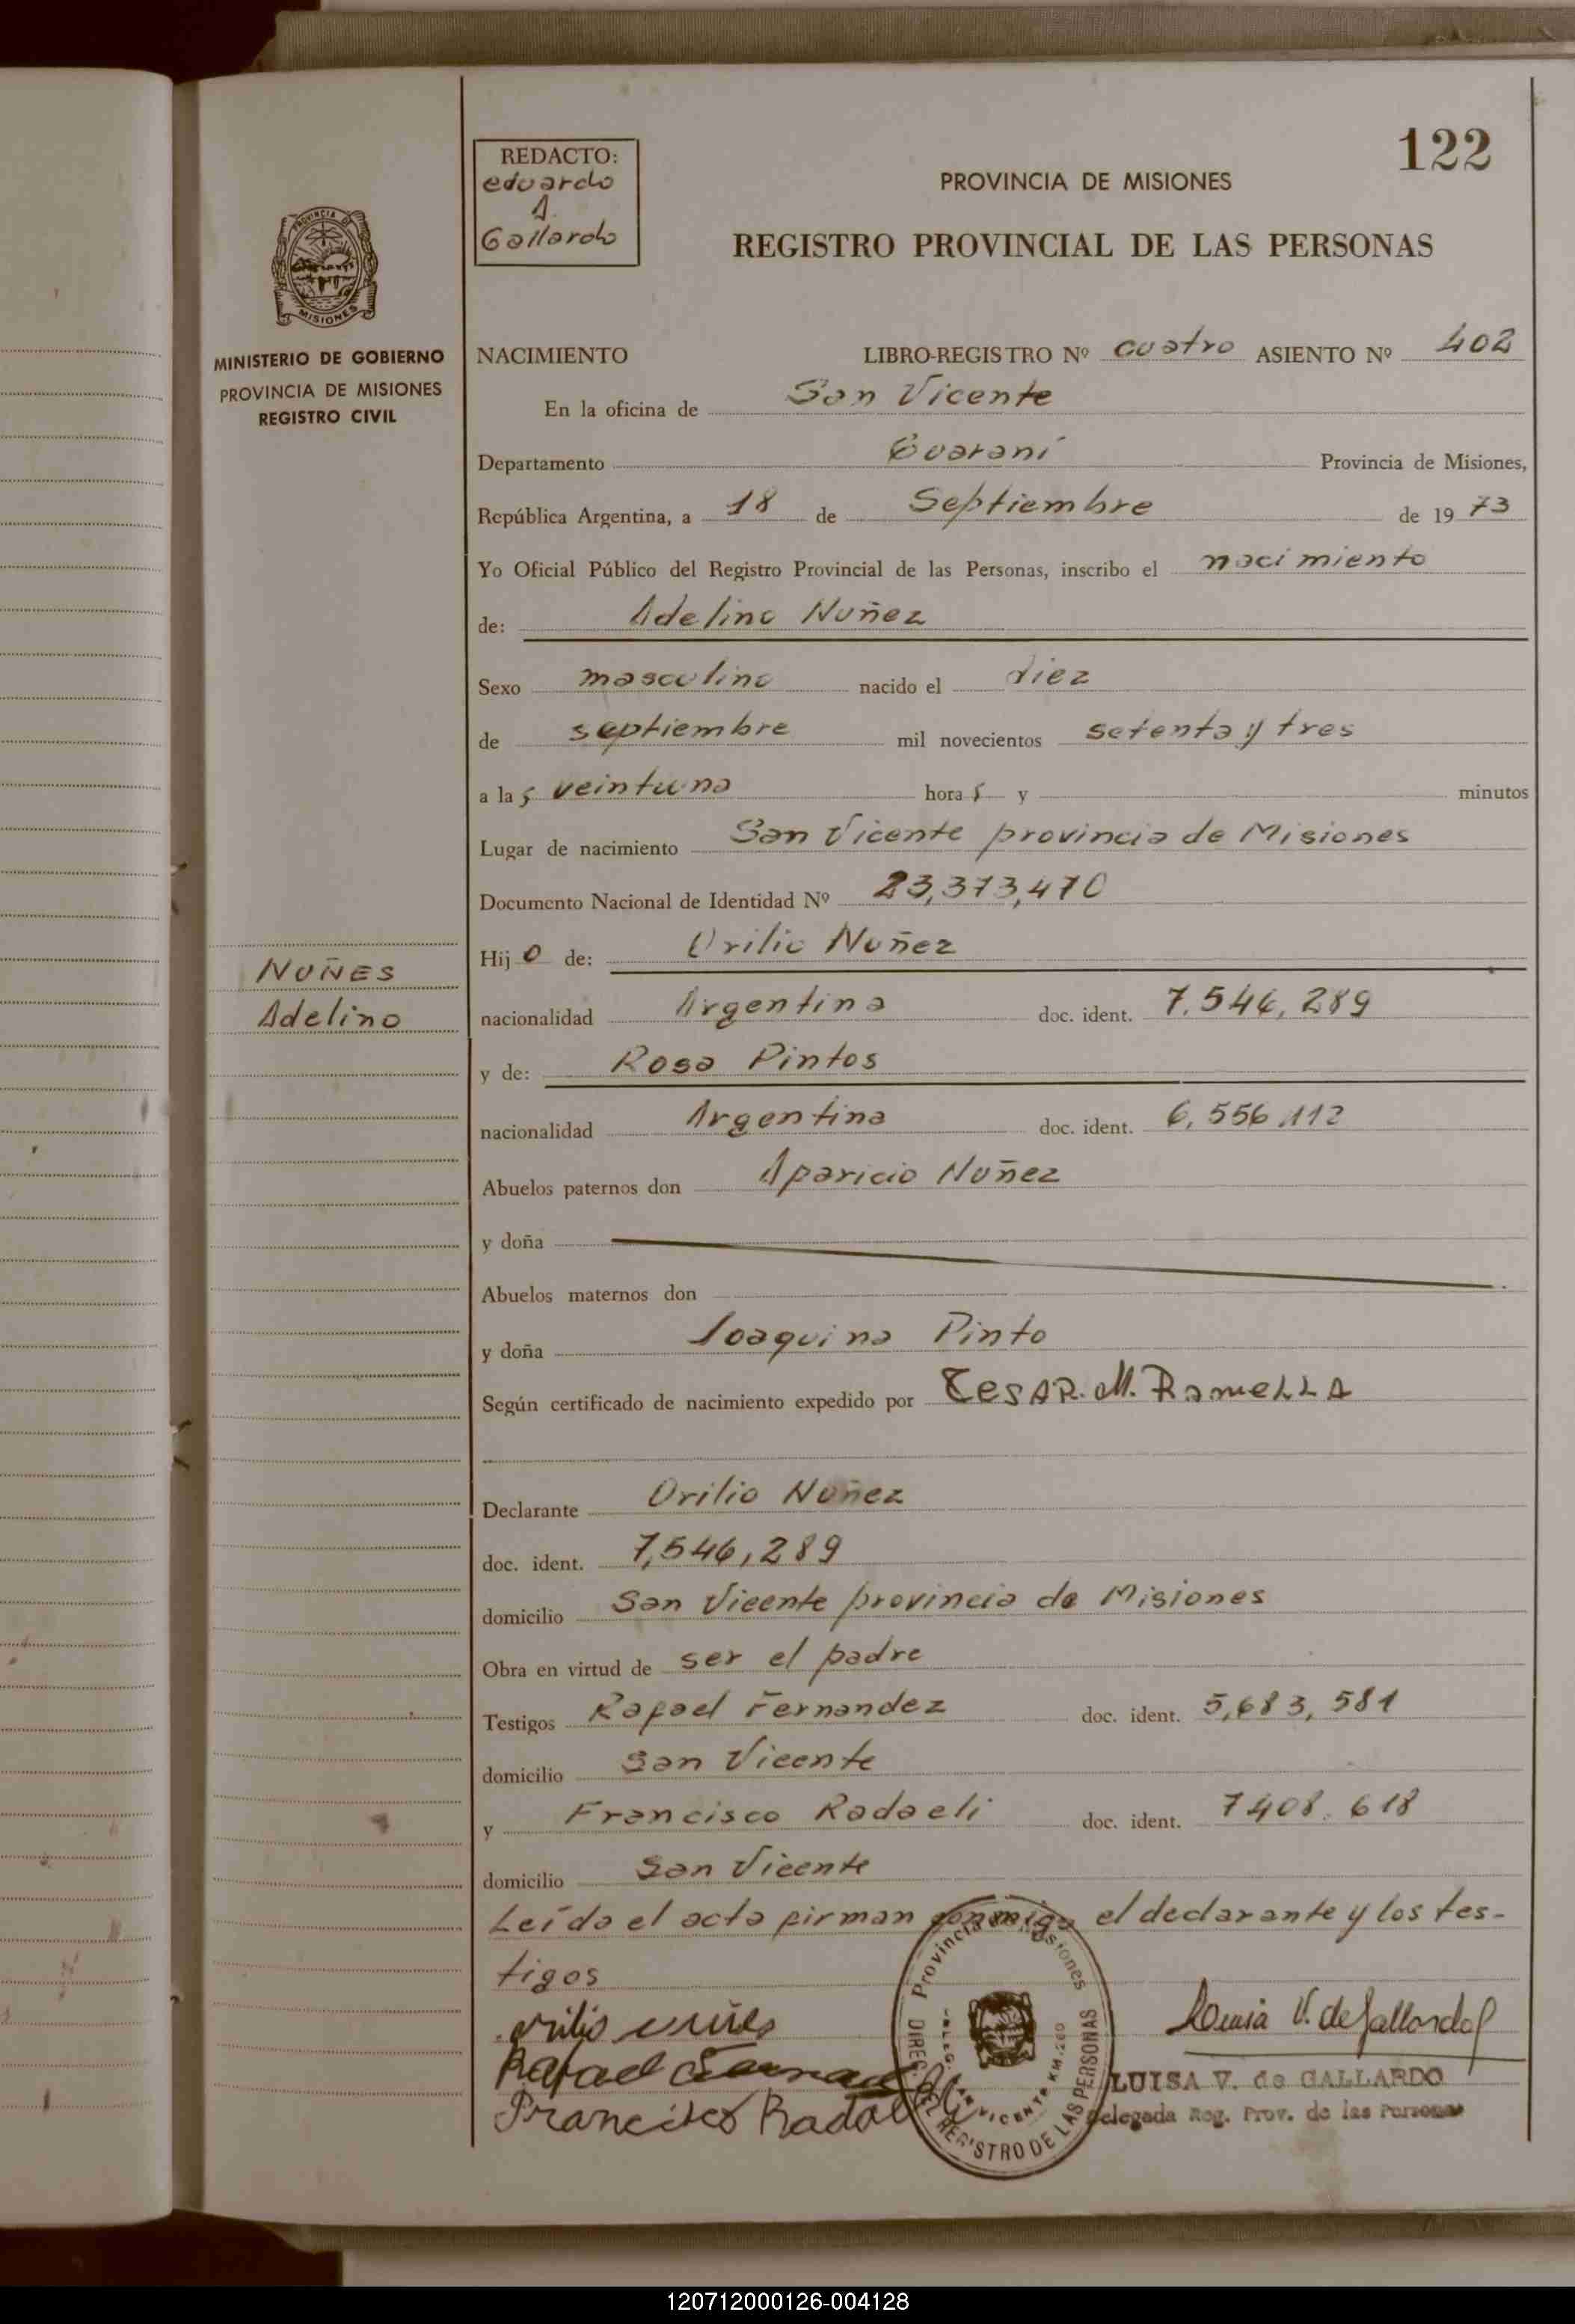 122
REDACTO:
eduardo
A.
Gallardo
PROVINCIA DE MISIONES
REGISTRO PROVINCIAL DE LAS PERSONAS
PROVINCIA DE
MISIONES
MINISTERIO DE GOBIERNO
PROVINCIA DE MISIONES
REGISTRO CIVIL
NACIMIENTO LIBRO-REGISTRO Nº cuatro ASIENTO Nº 402
En la oficina de San Vicente
Departamento Guaraní Provincia de Misiones,
República Argentina, a 18 de Septiembre de 1973
Yo Oficial Público del Registro Provincial de las Personas, inscribo el nacimiento
de: Adelino Nuñez
Sexo masculino nacido el diez
de septiembre mil novecientos setenta y tres
a las veintiuna horas y minutos
Lugar de nacimiento San Vicente provincia de Misiones
Documento Nacional de Identidad Nº 23,373,470
Hijo de: Orilio Nuñez
NUÑES
Adelino
nacionalidad Argentina doc. ident. 7.546,289
y de: Rosa Pintos
nacionalidad Argentina doc. ident. 6,556,112
Abuelos paternos don Aparicio Nuñez
y doña
Abuelos maternos don
y doña Joaquina Pinto
Según certificado de nacimiento expedido por CESAR. M. RAMELLA
Declarante Orilio Nuñez
doc. ident. 7,546,289
domicilio San Vicente provincia de Misiones
Obra en virtud de ser el padre
Testigos Rafael Fernandez doc. ident. 5,683,581
domicilio San Vicente
y Francisco Radaeli doc. ident. 7408.618
domicilio San Vicente
Leída el acta firman conmigo el declarante y los tes-
tigos
Provincia de Misiones
DIREC. DEL REGISTRO DE LAS PERSONAS
SAN VICENTE KM.260
orilio nuñes
Rafael
Francisco Radaeli
Luisa V. de Gallardo
LUISA V. de GALLARDO
Delegada Reg. Prov. de las Personas
120712000126-004128